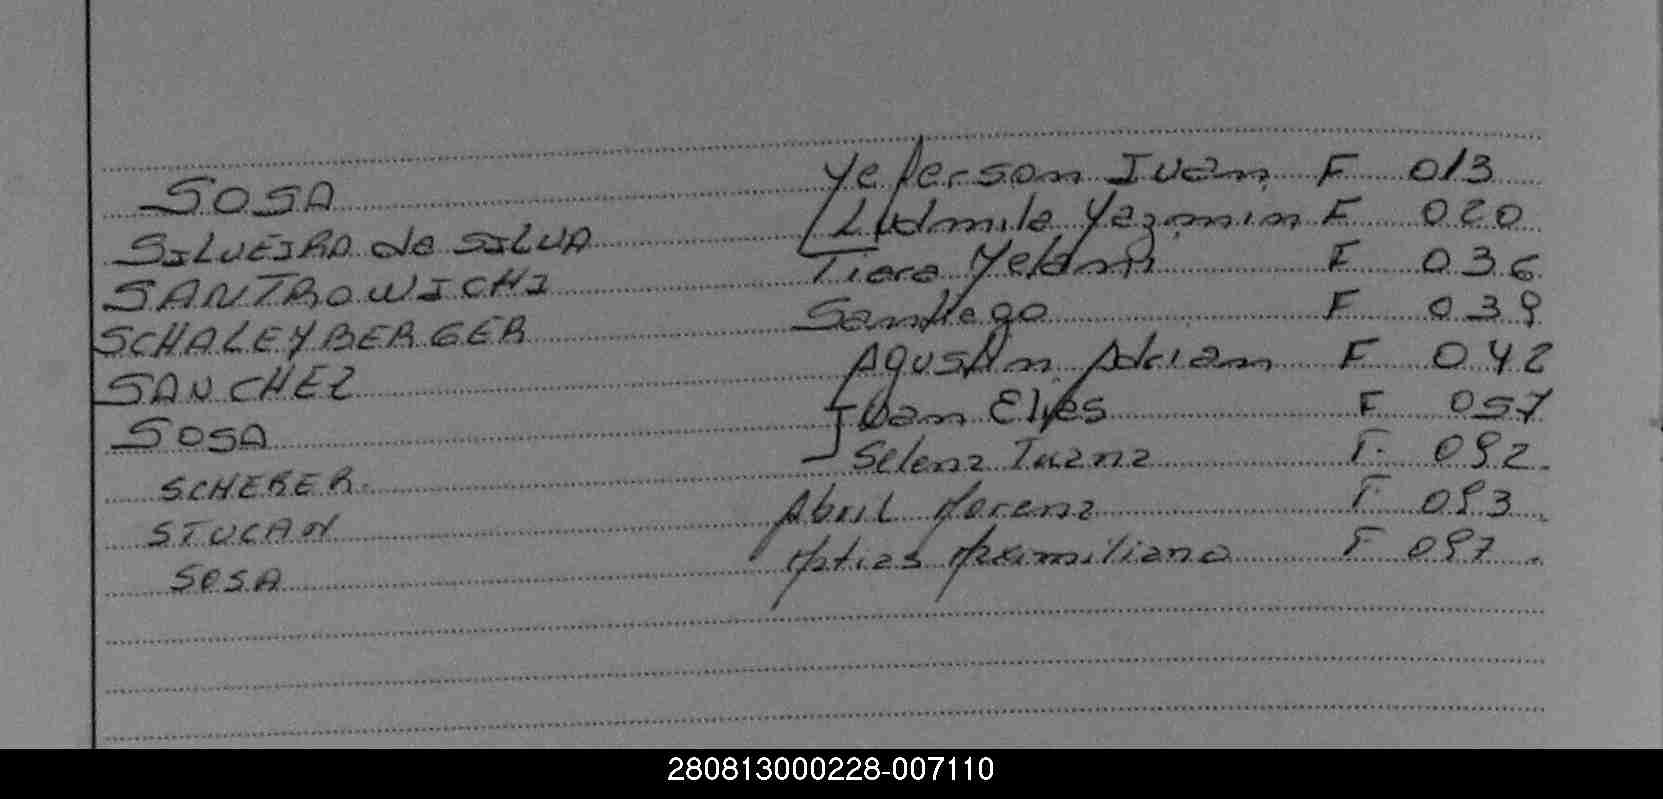 SOSA Yeferson Ivan F 013
SILVEIRA de SILVA Ludmila Yazmin F 020
SANTROWICHI Tiara F 036
SCHALEYBERGER Santiago F 039
SANCHEZ Agustin Adrian F 042
SOSA Ivan Elias F 057
SCHERER Selena Tuana F. 092
STUCAN Abril Morena F 093
SOSA Matias Maximiliano F 097
280813000228-007110